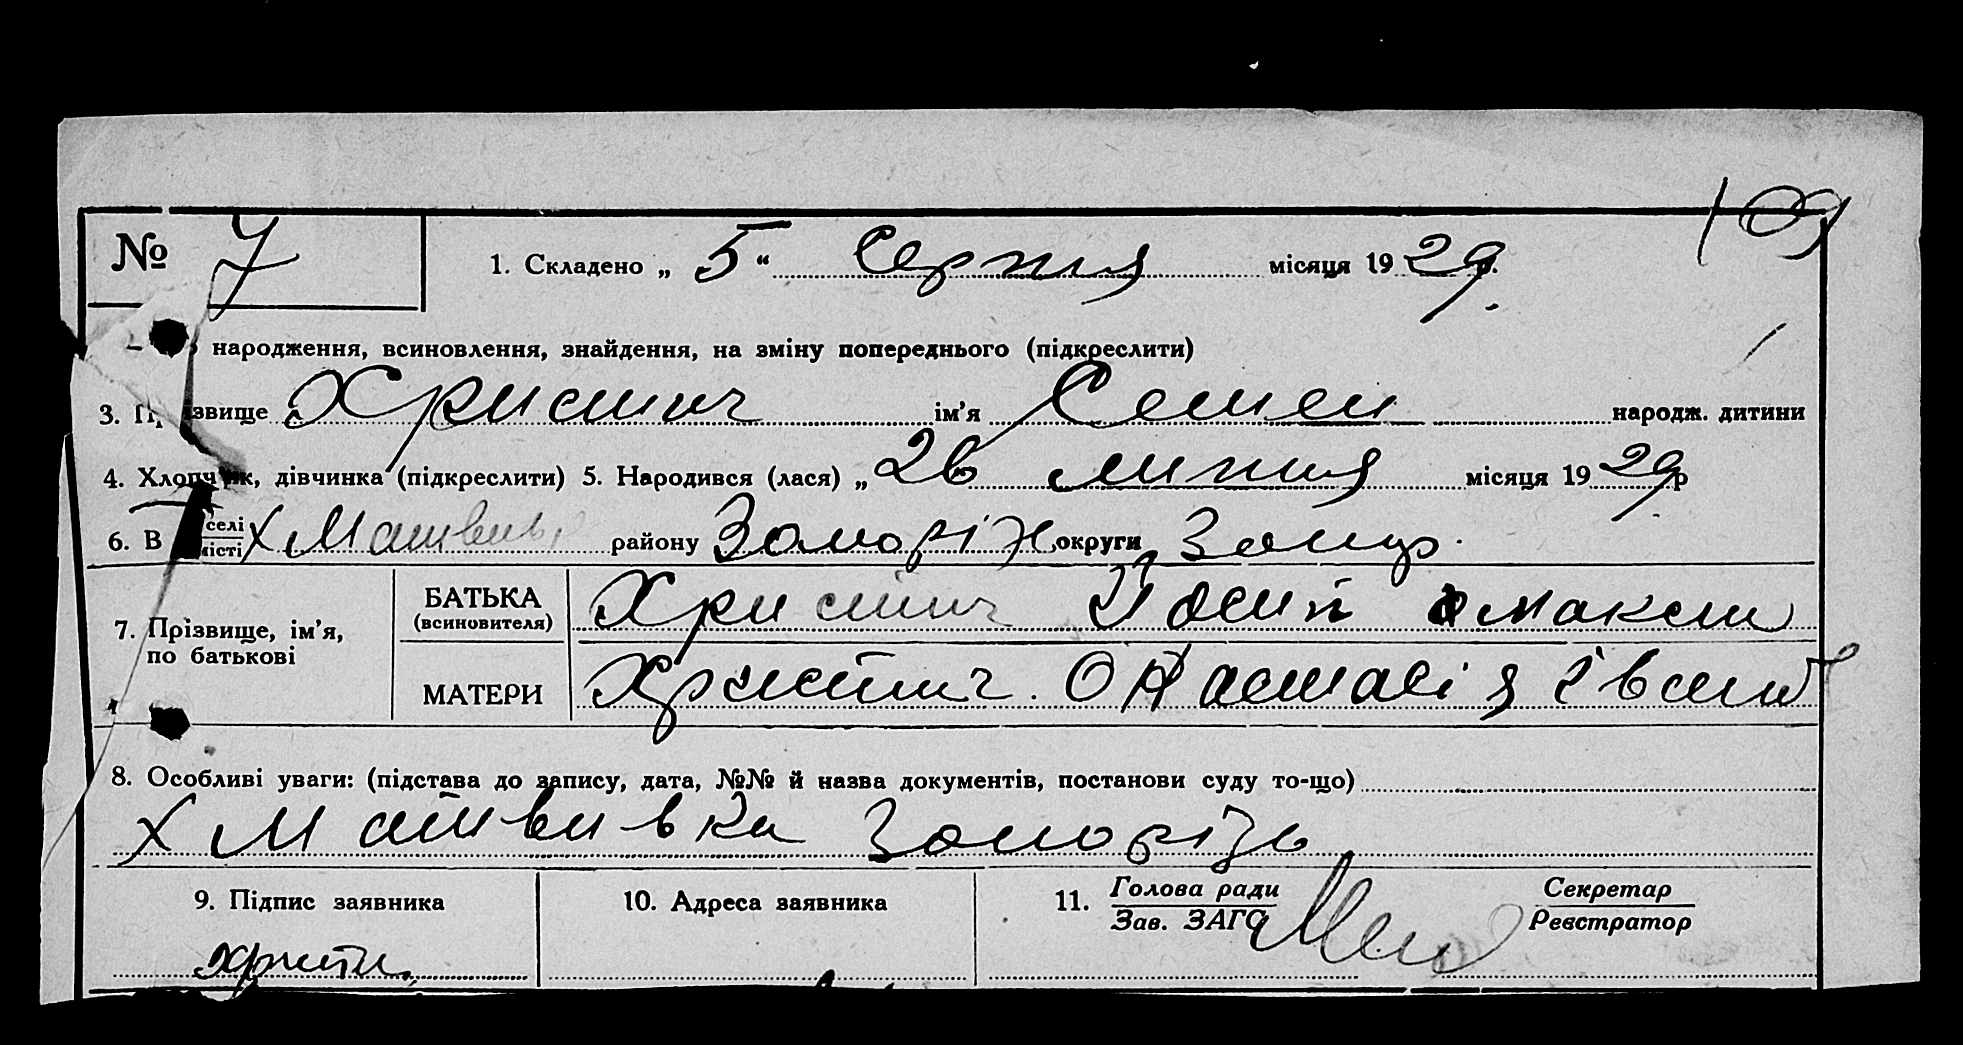 109
№ 7 1. Складено „ 5 “ Серпня місяця 1929 р.
народження, всиновлення, знайдення, на зміну попереднього (підкреслити)
3. Прізвище Христич ім’я Семен народж. дитини
4. Хлопчик, дівчинка (підкреслити) 5. Народився (лася) „ 26 липня місяця 1929 р
6. В селі місті Х Матвеев, району Запоріж округи Запор.
7. Прізвище, ім’я, по батькові
БАТЬКА (всиновителя) Христич Йосип Максим
МАТЕРИ Христич Анастасія Євсти
8. Особливі уваги: (підстава до запису, дата, №№ й назва документів, постанови суду то-що)
Х Матвиивка Запоріж
9. Підпис заявника 10. Адреса заявника 11. Голова ради Зав. ЗАГС Секретар Реєстратор
Христи